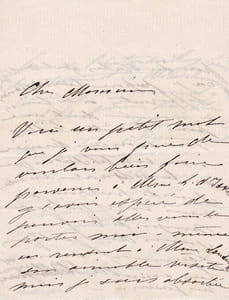 Cher Monsieur
Voici un petit mot
que je vous prie de
vouloir bien faire
parvenir à Mme
j'avais espéré
pouvoir aller
porter moi-même
en rendant à Mme
son aimable visite
mais je suis absorbée